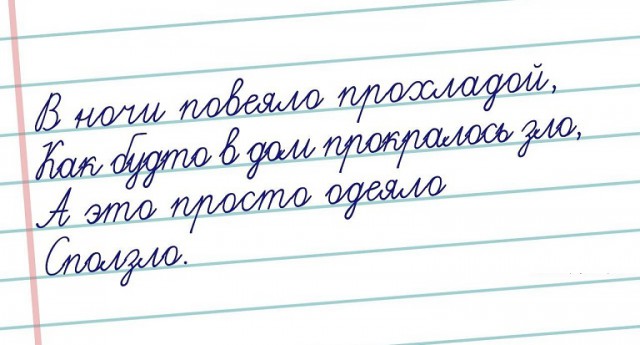 В ночи повеяло прохладой,
Как будто в дом прокралось зло,
А это просто одеяло
Сползло.